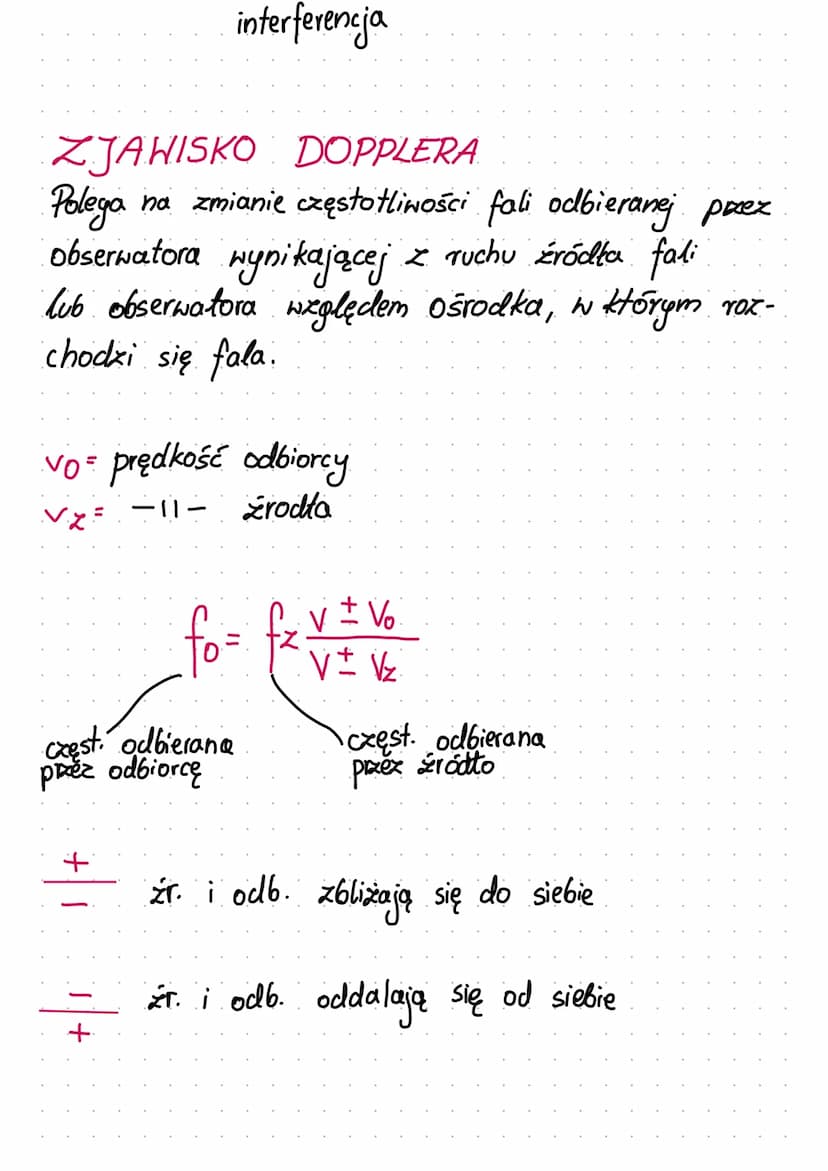 interferencja
ZJAWISKO DOPPLERA
Polega na zmianie częstotliwości fali odbieranej przez
obserwatora wynikającej z ruchu źródła fali
lub obserwatora względem ośrodka, w którym roz-
chodzi się fala.
v₀ = prędkość odbiorcy
v_z = -11- źrodła
f₀ = f_z (v ± v₀) / (v ± v_z)
częst. odbierana
przez odbiorcę
częst. odbierana
przez źródło
+
− źr. i odb. zbliżają się do siebie
− źr. i odb. oddalają się od siebie
+